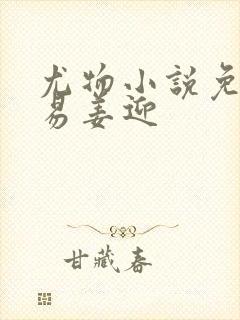 尤物小说免
易姜迎
甘藏春